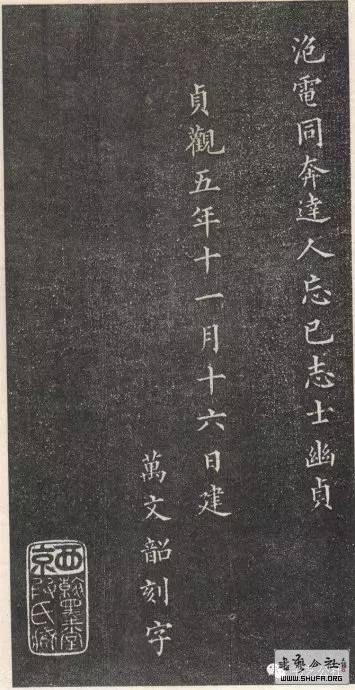 泡電同奔達人忘已志士幽貞
貞觀五年十一月十六日建
萬文韶刻字
西京
书艺公社
WWW.SHUFA.ORG